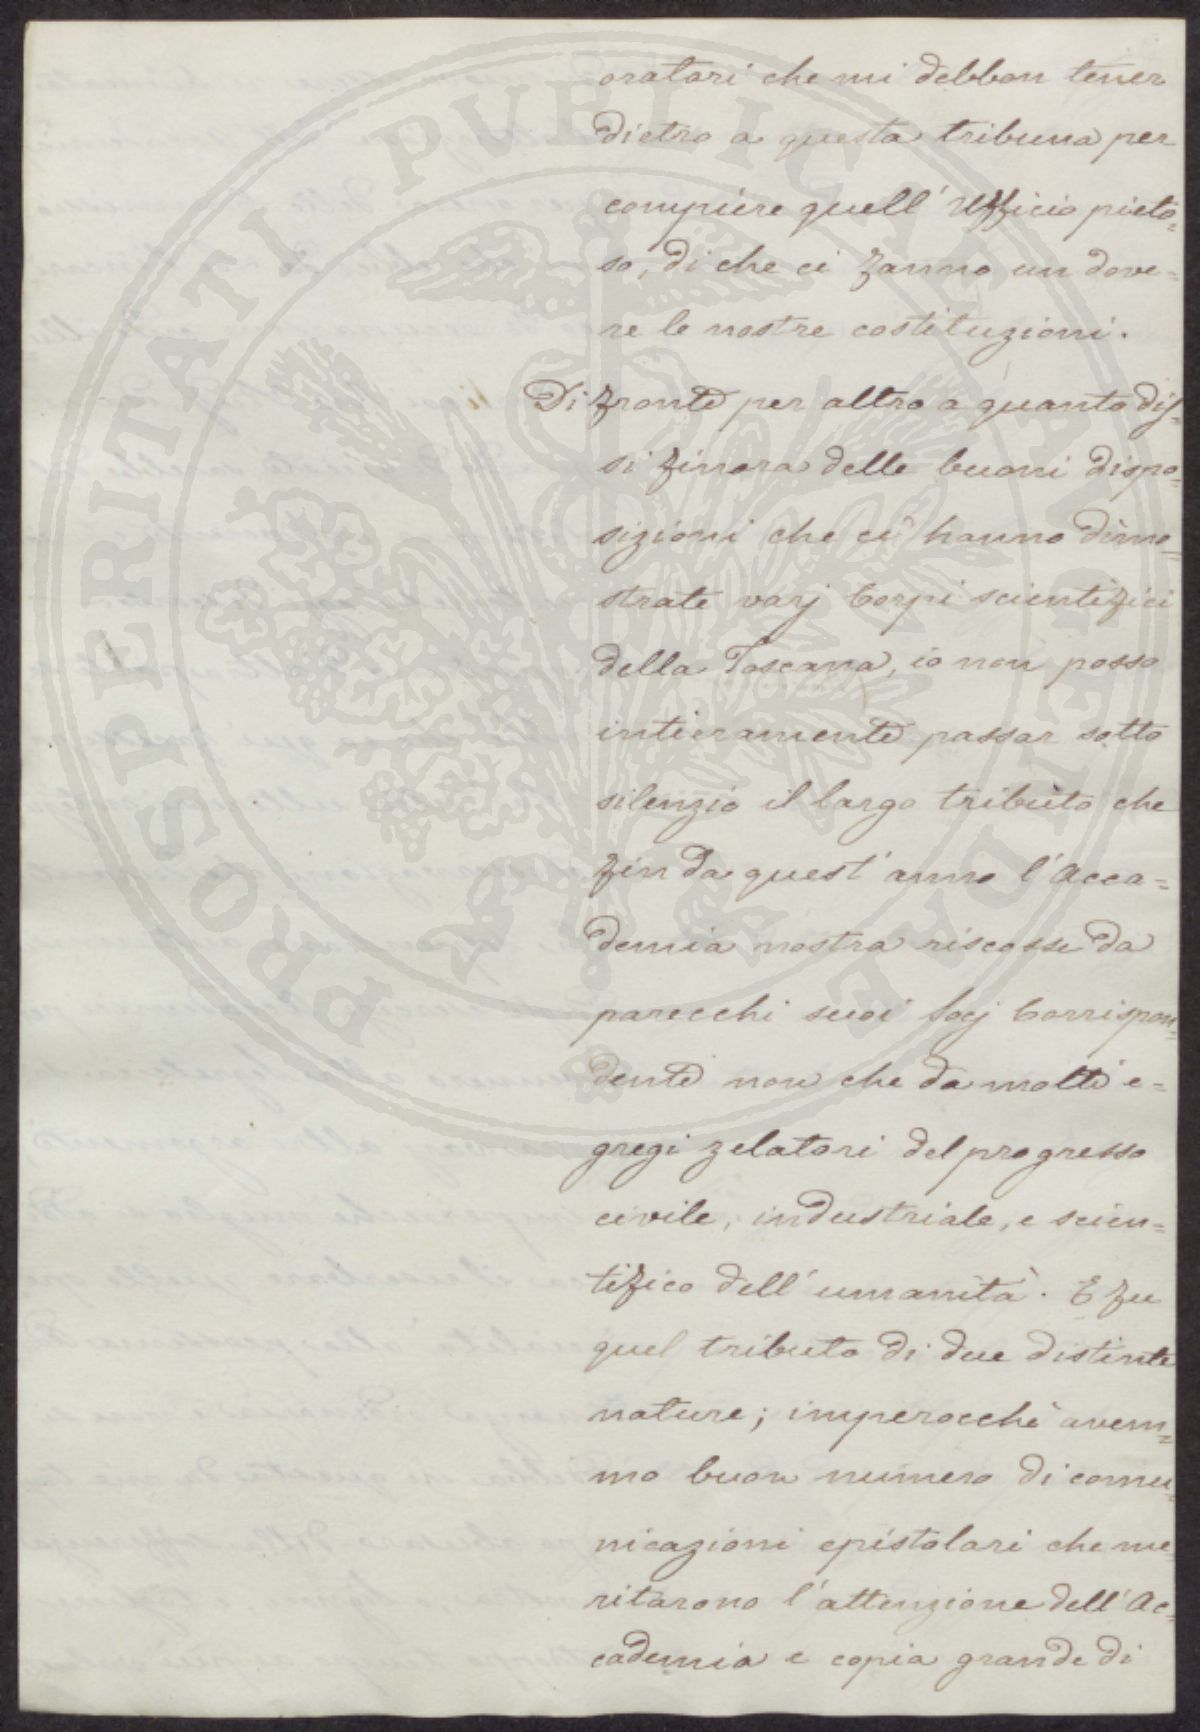 oratori che mi debbon tener
dietro a questa tribuna per
compiére quell' Ufficio pieto=
so, di che ci fanno un dove=
re le nostre costituzioni.
Di fronte per altro a quanto dis=
si finora delle buoni dispo=
sizioni che ci hanno dimo=
strate varj Corpi scientifici
della Toscana, io non posso
intieramente passar sotto
silenzio il largo tributo che
fin da quest' anno l' Acca=
demia nostra riscosse da
parecchi suoi Socj Corrispon=
denti non che da molti e=
gregi zelatori del progresso
civile, industriale, e scien=
tifico dell' umanità. E fu
quel tributo di due distinte
nature; imperocchè avem=
mo buon numero di comu=
nicazioni epistolari che me
ritarono l' attenzione dell' Ac=
cademia e copia grande di
PROSPERITATI PUBLICAE AUGENDAE